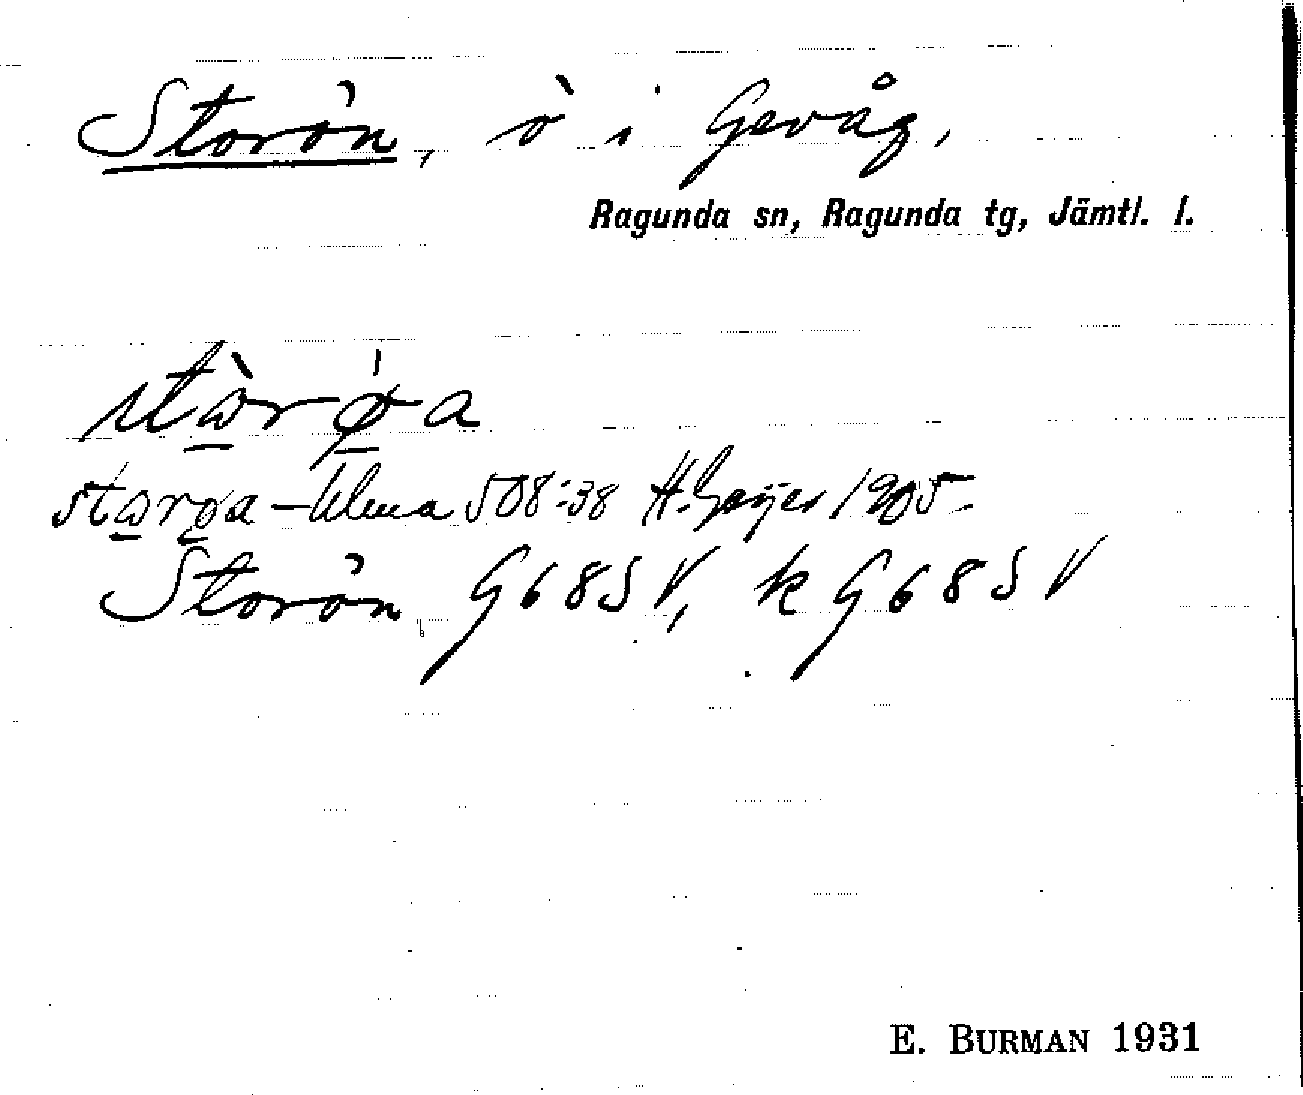 Storön, ö i Gevåg,
Ragunda sn, Ragunda tg, Jämtl. l.
stòrø̀a
storøa – Ulma 508:38 H. Geijer 1905
Storön G68SV, k G68SV
E. BURMAN 1931